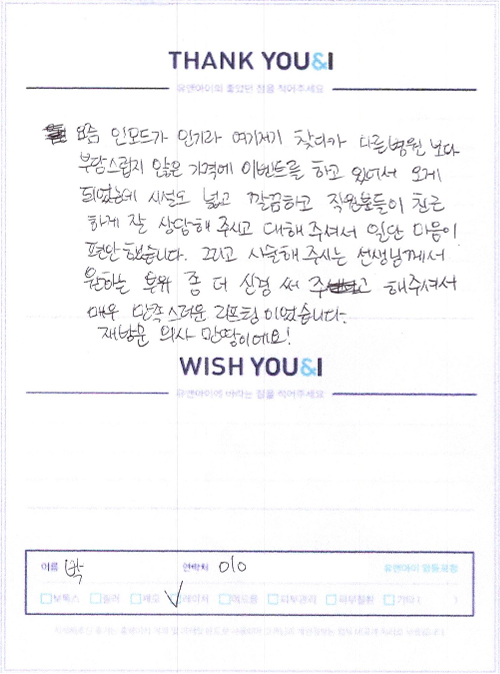 THANK YOU&I
유앤아이의 좋았던 점을 적어주세요
요즘 인모드가 인기라 여기저기 찾다가 다른병원 보다
부담스럽지 않은 가격에 이벤트를 하고 있어서 오게
되었는데 시설도 넓고 깔끔하고 직원분들이 친근
하게 잘 상담해 주시고 대해 주셔서 일단 마음이
편안했습니다. 그리고 시술해주시는 선생님께서
원하는 부위 좀 더 신경 써 해주셔서
매우 만족스러운 리프팅 이었습니다.
재방문 의사 만땅이에요!
WISH YOU&I
유앤아이에 바라는 점을 적어주세요
이름 박 연락처 010
보톡스 필러 제모 레이저 여드름 피부관리 피부질환 기타 ( )